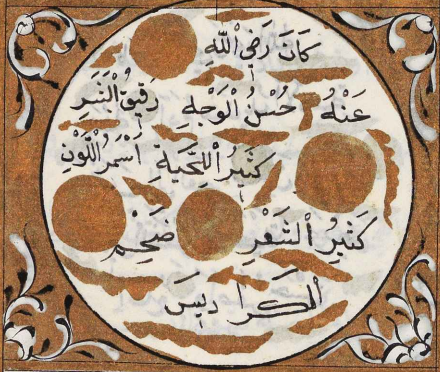 كَانَ رَضِيَ اللّٰهُ
عَنْهُ حُسْنُ الْوَجْهِ رَقِيقُ الْبَشَرِ
كَثِيرُ اللِّحْيَةِ أَسْمَرُ اللَّوْنِ
كَثِيرُ الشَّعْرِ ضَخِيْم
الْكَرَادِيسَ